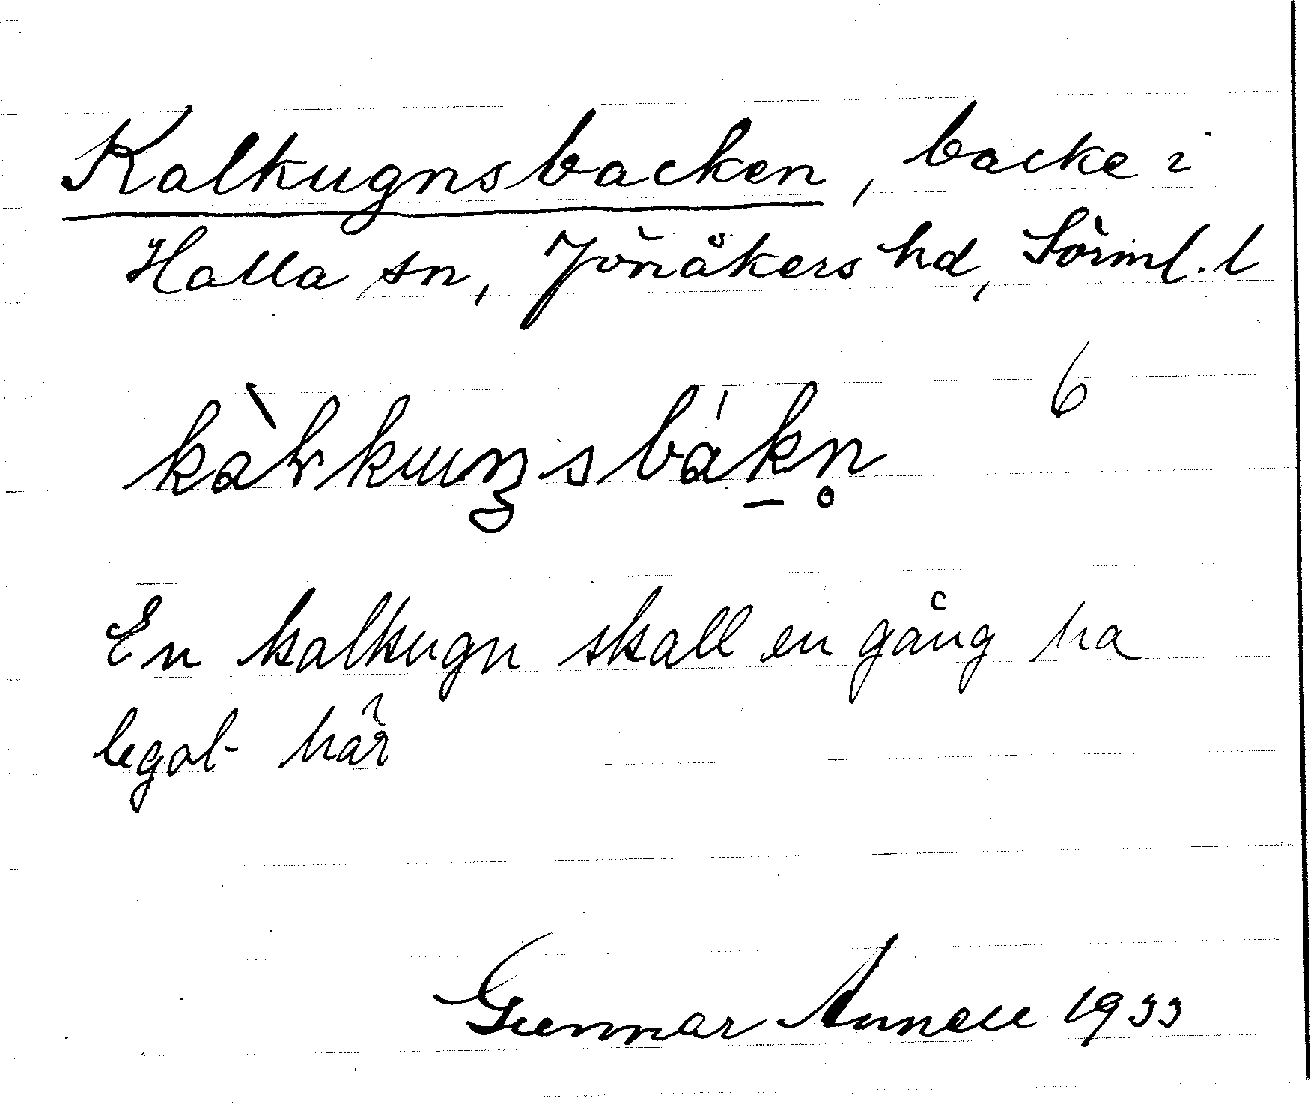 Kalkugnsbacken, backe i
Halla sn, Jönåkers hd, Sörml. l
6
En kalkugn skall en gång ha
legat här
Gunnar Annell 1933